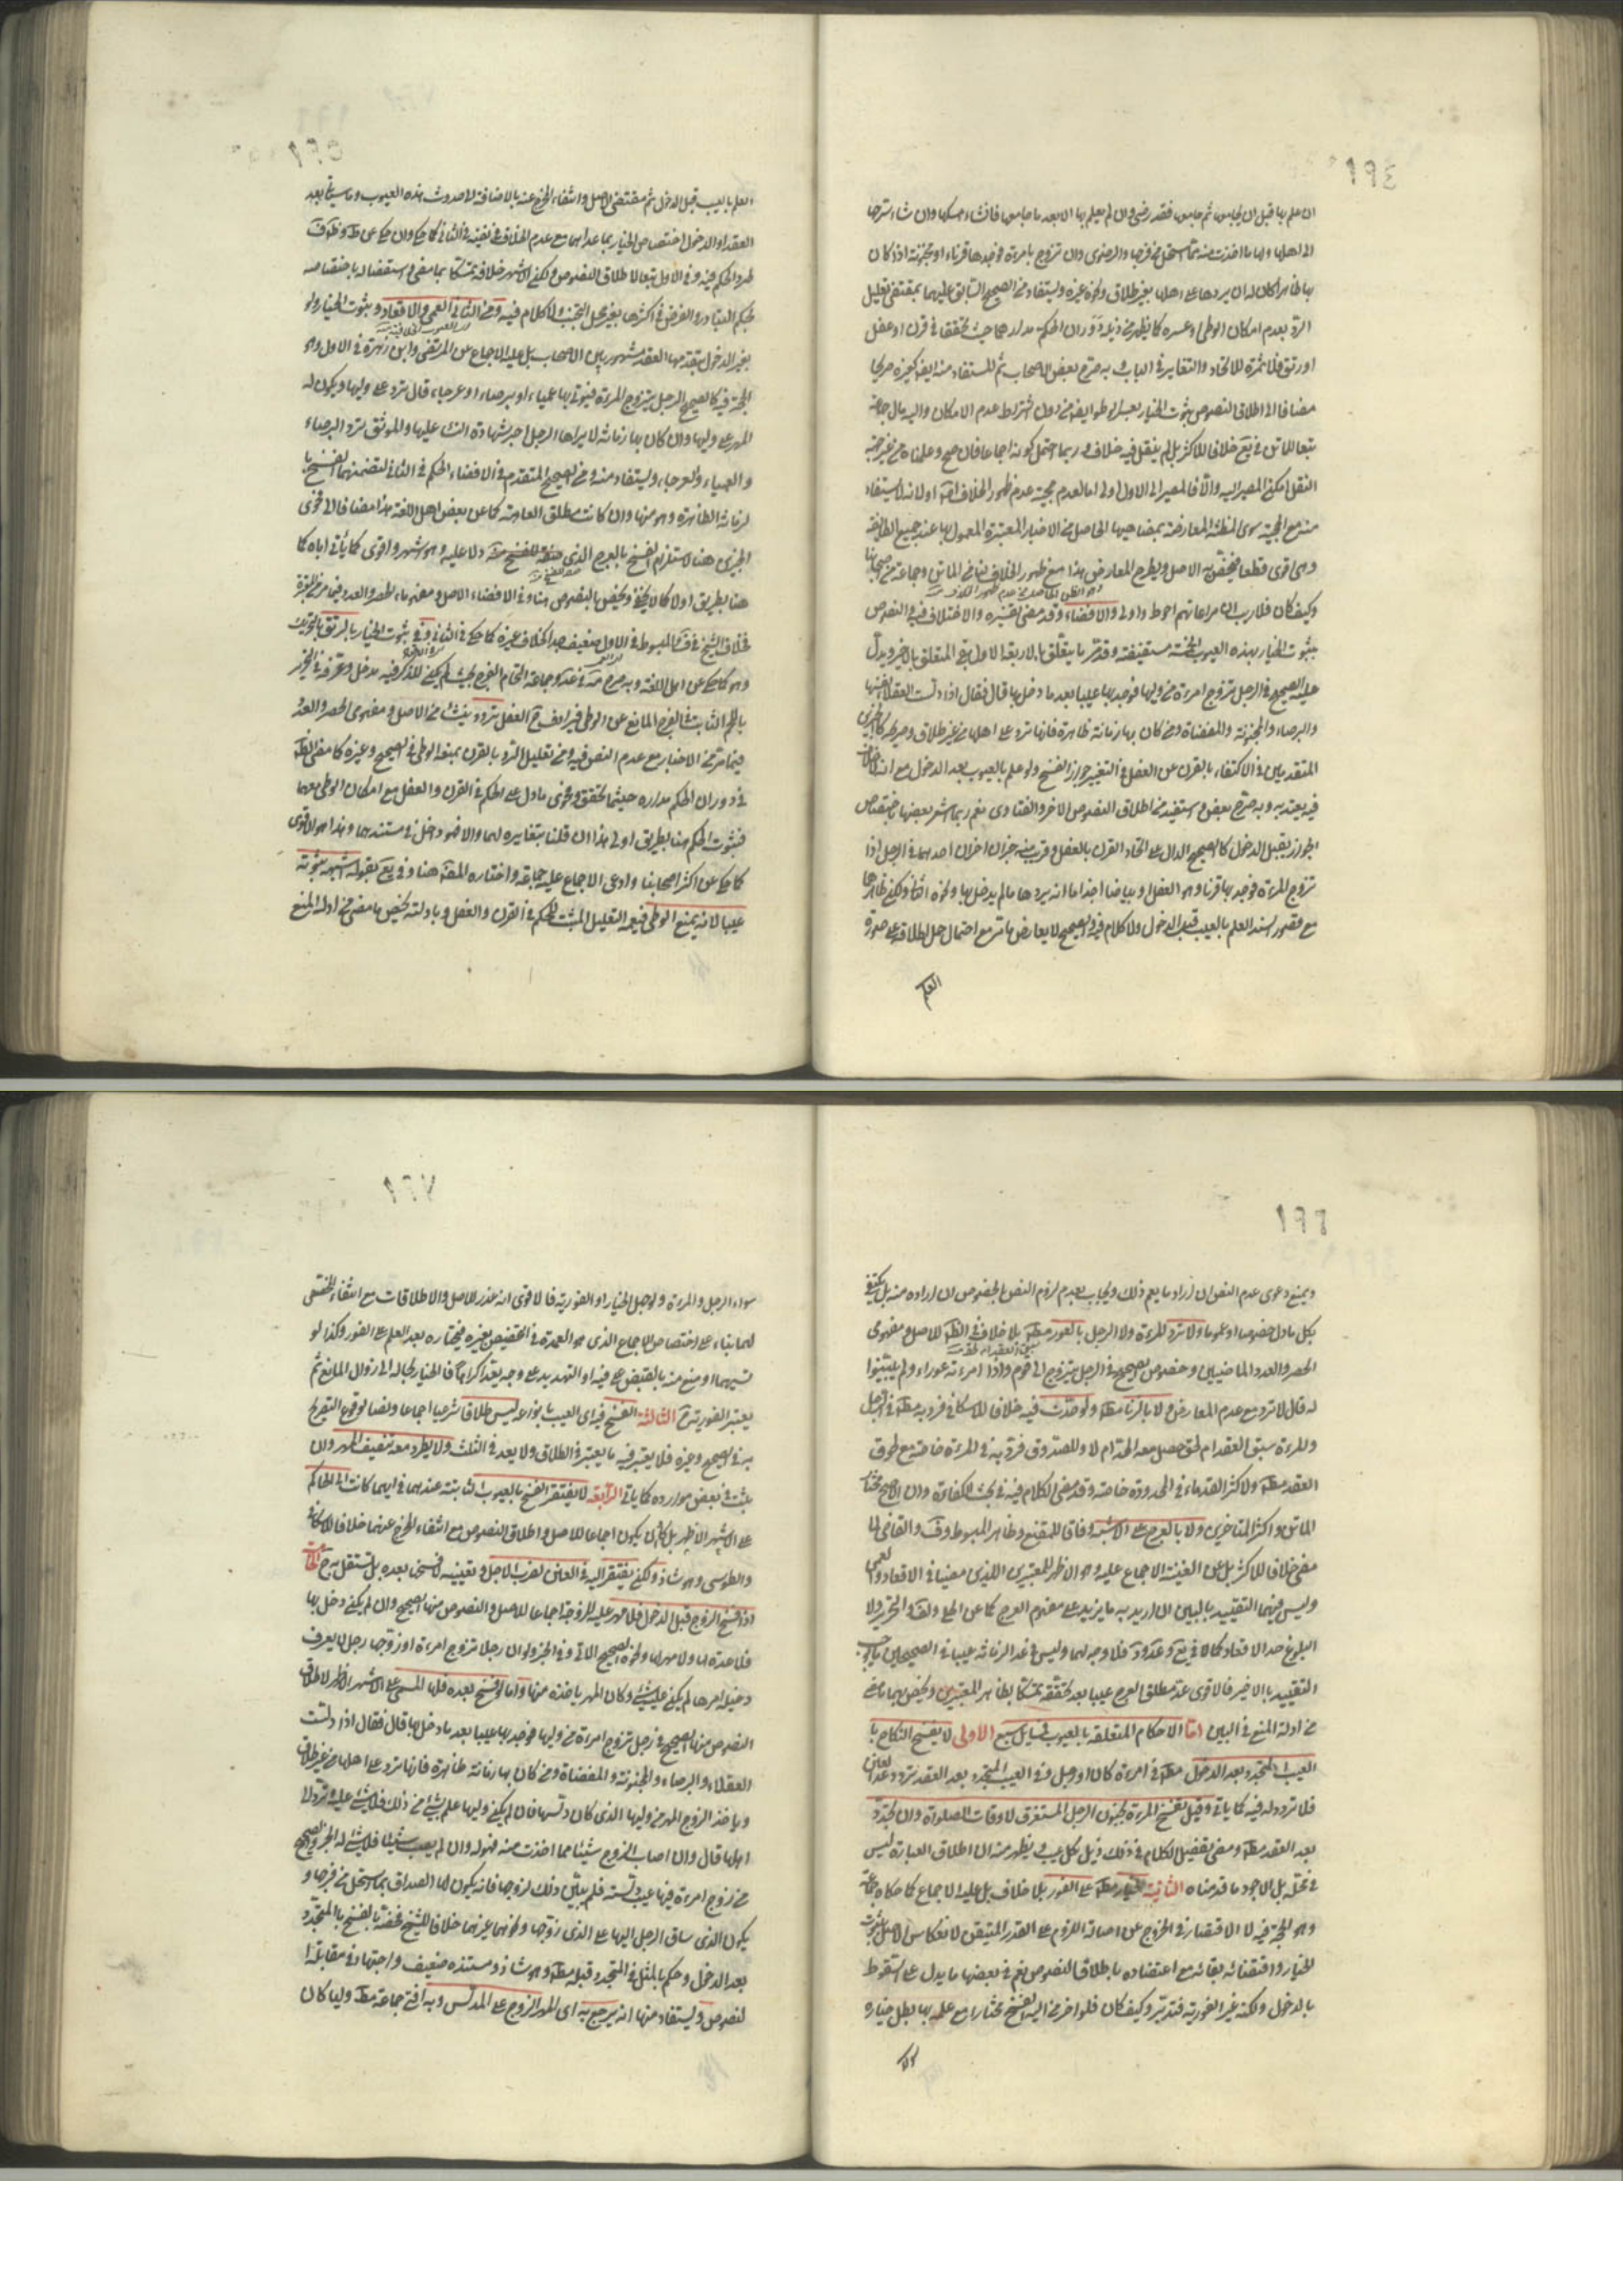 ١٩٤
ان علم بها قبل ان يجامعها ثم جامعها فقد رضى وان لم يعلم بها الا بعد ما جامعها فان شاء امسكها وان شاء سرحها
الى اهلها ولها ما اخذت منه بما استحل من فرجها والرضوى وان تزوج بامرءة فوجدها قرناء او مجنونة اذا كان
بها ظاهرا كان له ان يردها على اهلها بغير طلاق ونحوه غيره ويستفاد من الصحيح السابق عليهما بمقتضى تعليل
الرد بعدم امكان الوطى او عسره كما يظهر من ذيله دوران الحكم مداره حيث تحققا فى قرن او عفل
او رتق فلا ثمرة للاتحاد والتغاير فى الباب وبه صرح بعض الاصحاب ثم المستفاد منه ايضا كغيره صريحا
مضافا الى اطلاق النصوص بثبوت الخيار بعد الوطى من دون اشتراط عدم الامكان واليه مال جماعة
تبعا للماتن فى يع خلافا للاكثر بل لم ينقل فيه خلاف وربما احتمل كونه اجماعا فان صح وعلمناه من غير جهة
النقل امكن المصير اليه والا فالمصير الى الاول اولى اما لعدم حجية عدم ظهور الخلاف او لانه لا يستفاد
منه مع الحجية سوى المظنة المعارضة بمضاهيها الحاصل من الاخبار المعتبرة المعمول بها عند جميع الطايفة
وهى اقوى قطعا فيخص به الاصل ويطرح المعارض هذا مع ظهور الخلاف لنا من الماتن وجماعة من اصحابنا
وكيف كان فلا ريب ان مراعاتهم احوط واولى والافضاء وقد مضى تفسيره والاختلاف فيه والنصوص
بثبوت الخيار بهذه العيوب الخمسة مستفيضة وقد مر ما يتعلق بالاربعة الاول بقى المتعلق بالاخير ويدل
عليه الصحيح فى الرجل يتزوج امرءة من وليها فوجد بها عيبا بعد ما دخل بها قال فقال اذا دلست العفلاء نفسها
والبرصاء والمجنونة والمفضاة ومن كان بها زمانة ظاهرة فانها ترد على اهلها من غير طلاق
المتقدمين فى الاكتفاء بالقرن عن العفل فى التعبير جواز الفسخ ولو علم بالعيوب بعد الدخول مع
فيه يعتد به وبه صرح بعض واستفيد من اطلاق النصوص الاخر والفتاوى نعم ربما اشعر بعضها باختصاص
الجواز بقبل الدخول كالصحيح الدال على اتحاد القرن بالعفل وقرب منه خبران اخران احدهما فى الرجل اذا
تزوج المرءة فوجد بها قرنا وهو العفل او بياضا او جذاما انه يردها ما لم يدخل بها ونحوه الثانى ولكن ظاهرهما
مع قصور السند العلم بالعيب قبل الدخول ولا كلام فيه والصحيح لا يعارض ما مر مع احتمال حمل اطلاقه على صورة
العلم
١٩٥
العلم بالعيب قبل الدخول ثم مقتضى الاصل وانتفاء المخرج عنه بالاضافة الى حدوث هذه العيوب وما سيأتى بعد
العقد او الدخول اختصاص الخيار بما عداهما مع عدم الخلاف فى نفيه فى الثانى كما حكى وان حكى عن ط وظ وف
طرد الحكم فيه وفى الاول تبعا لاطلاق النصوص ولكن الاشهر خلافه تمسكا بما مضى واستضعافا له باختصاصه
بحكم التبادر والفرض فى اكثرها بغير محل البحث ولا كلام فيه ومن الثانى العمى والاقعاد وثبوت الخيار ولو
بغير الدخول بتقدمهما العقد مشهور بين الاصحاب بل عليه الاجماع عن المرتضى وابن زهرة فى الاول وهو
الحجة فيه كالصحيح الرجل يتزوج المرءة فيؤتى بها عمياء او برصاء او عرجاء قال ترد على وليها ويكون له
المهر على وليها وان كان بها زمانة لا يراها الرجل اجيز شهادة النساء عليها والموثق ترد البرصاء
والعمياء والعرجاء ويستفاد منه ومن الصحيح المتقدم فى الافضاء الحكم فى الثانى لتضمنهما الفسخ با
لزمانة الظاهرة وهو منها وان كانت مطلق العاهة كما عن بعض اهل اللغة هذا مضافا الى فحوى
المجزى هنا لاستلزام الفسخ بالعرج الذى دلا عليه وهو اشهر واقوى كما يأتى اياه كما
هنا بطريق اولى كما لا يخفى ويخص بالنصوص هنا وفى الافضاء الاصل ومفهوما الحصر والعدد فيما مر من المعتبرة
فخلاف الشيخ فى ف والمبسوط فى الاول ضعيف جدا كخلاف غيره كما حكى فى الثانى وفى ثبوت الخيار بالرتق بالتحريك
وهو كما حكى عن اهل اللغة وبه صرح فى عد وجماعة التحام الفرج بحيث لم يكن للذكر فيه مدخل وعرفه فى التحرير
باللحم النابت فى الفرج المانع عن الوطى فيرادف ح العفل تردد ينشأ من الاصل ومفهومى الحصر والعدد
فيما مر من الاخبار مع عدم النص فيه ومن تعليل الرد بالقرن بمنعه الوطى فى الصحيح وغيره كما مضى
فى دوران الحكم مداره حيثما تحقق وفحوى ما دل على الحكم فى القرن والعفل مع امكان الوطى معهما
فثبوت الحكم هنا بطريق اولى هذا ان قلنا بتغايره لهما والا فهو داخل فى مستندهما وهذا هو الاقوى
كما حكى عن اكثر اصحابنا وادعى الاجماع عليه جماعة واختاره المصنف هنا وفى يع بقوله اشبهه ثبوته
عيبا لانه يمنع الوطى فيعمه التعليل المثبت للحكم فى القرن والعفل وبادلته يخص ما مضى من ادلة المنع
١٩٦
ويمنع دعوى عدم النص ان اراد ما يعم ذلك ويجاب بعدم لزوم النص بالخصوص ان اراده منه بل يكتفى
بكل ما دل خصوصا او عموما ولا ترد المرءة ولا الرجل بالعور مطلقا بلا خلاف فى الظاهر للاصل ومفهومى
الحصر والعدد الماضيين وخصوص الصحيح فى الرجل يتزوج الى قوم واذا امرءته عوراء ولم يبينوا
له قال لا ترد مع عدم المعارض ولا بالزنا مطلقا ولو حدت فيه خلافا للاسكافى فرد به مطلقا فى الرجل
وللمرءة سبق العقد ام لحق حصل معه الحد ام لا وللصدوق فرد به فى المرءة خاصة مع لحوق
العقد مطلقا ولاكثر القدماء فى المحدودة خاصة وقد مضى الكلام فيه فى بحث الكفائة وان الاصح مختار
الماتن واكثر المتاخرين ولا بالعرج على الاشبه وفاقا للمقنع وظاهر المبسوط وف والقاضى لما
مضى خلافا للاكثر بل عن الغنية الاجماع عليه وهو الاظهر للمعتبرين اللذين مضيا فى الاقعاد والعمى
وليس فيهما التقييد بالبين ان اريد به ما يزيد على مفهوم العرج كما عن الحلى ولف والتحرير ولا
البلوغ حد الاقعاد كما فى يع وعد ود فلا وجه لهما وليس فى عد الزمانة عيبا فى الصحيحين ما يوجب
التقييد بالاخير فالاقوى عد مطلق العرج عيبا بعد تحققه تمسكا بظاهر المعتبرين ويخص بهما ما مضى
من ادلة المنع فى البين اما الاحكام المتعلقة بالعيوب فمسايل سبع الاولى لا يفسخ النكاح با
لعيب المتجدد بعد الدخول مطلقا فى امرءة كان او رجل وفى العيب المتجدد بعد العقد تردد عدا العنن
فلا تردد له فيه كما يأتى وقيل تفسخ المرءة بجنون الرجل المستغرق لاوقات الصلوة وان تجدد
بعد العقد مطلقا ومضى تفصيل الكلام فى ذلك ذيل كل عيب ويظهر منه ان اطلاق العبارة ليس
فى محله بل الاجود ما قدمناه الثانية الخيار مطلقا على الفور بلا خلاف بل عليه الاجماع كما حكاه جماعة
وهو الحجة فيه لا الاقتصار فى الخروج عن اصالة اللزوم على القدر المتيقن لانعكاس الاصل بثبوت
الخيار واقتضائه بقائه مع اعتضاده باطلاق النصوص نعم فى بعضها ما يدل على السقوط
بالدخول ولكنه غير الفورية فتدبر وكيف كان فلو اخر من اليه الفسخ مختارا مع علمه بها بطل خياره
سواء
١٩٧
سواء الرجل والمرءة ولو جهل الخيار او الفورية فالاقوى انه عذر للاصل والاطلاقات مع انتفاء المخصص
لهما بناء على اختصاص الاجماع الذى هو العمدة فى التخصيص بغيره فيختاره بعد العلم على الفور وكذا لو
نسيهما او منع منه بالقبض على فيه او التهديد على وجه يعد اكراها فالخيار بحاله الى زوال المانع ثم
يعتبر الفورية ح الثالثة الفسخ فيه اى العيب بانواعه ليس طلاقا شرعيا اجماعا ونصا لوقوع التصريح
به فى الصحيح وغيره فلا يعتبر فيه ما يعتبر فى الطلاق ولا يعد فى الثلث ولا يطرد معه تنصيف المهر وان
ثبت فى بعض موارده كما يأتى الرابعة لا يفتقر الفسخ بالعيوب الثابتة عندهما فى ايهما كانت الى الحاكم
على الاشهر الاظهر بل كاد ان يكون اجماعا للاصل واطلاق النصوص مع انتفاء المخرج عنهما خلافا للاسكافى
والطوسى وهو شاذ ولكن يفتقر اليه فى العنن لضرب الاجل وتعيينه لا فسخها بعده بل تستقل به ح الخامسة
اذا فسخ الزوج قبل الدخول فلا مهر عليه للزوجة اجماعا للاصل والنصوص منها الصحيح وان لم يكن دخل بها
فلا عدة لها ولا مهر لها ونحوه الصحيح الاتى وفى الخبر ولو ان رجلا تزوج امرءة او زوجها رجل لا يعرف
دخيلة امرها لم يكن عليه شىء وكان المهر يأخذه منها واما لو فسخ بعده فلها المسمى على الاشهر الاظهر لاطلاق
النصوص منها الصحيح فى رجل تزوج امرءة من وليها فوجد بها عيبا بعد ما دخل بها قال فقال اذا دلست
العفلاء والبرصاء والمجنونة والمفضاة ومن كان بها زمانة ظاهرة فانها ترد على اهلها من غير طلاق
وياخذ الزوج المهر من وليها الذى كان دلسها فان لم يكن وليها علم بشىء من ذلك فلا شىء عليه وترد الى
اهلها قال وان اصاب الزوج شيئا مما اخذت منه فهو له وان لم يصب شيئا فلا شىء له الخبر والصحيح
من زوج امرءة فيها عيب دلسته فلم يبين ذلك لزوجها فانه يكون لها الصداق بما استحل من فرجها و
يكون الذى ساق الرجل اليها على الذى زوجها ونحوهما غيرهما خلافا للشيخ فخصه بالفسخ بالمتجدد
بعد الدخول وحكم بالمثل فى المتجدد قبله مطلقا وهو شاذ ومستنده ضعيف واجتهاد فى مقابلة ا
لنصوص ويستفاد منها انه يرجع به اى المهر الزوج على المدلس وبه افتى جماعة مطلقا وليا كان